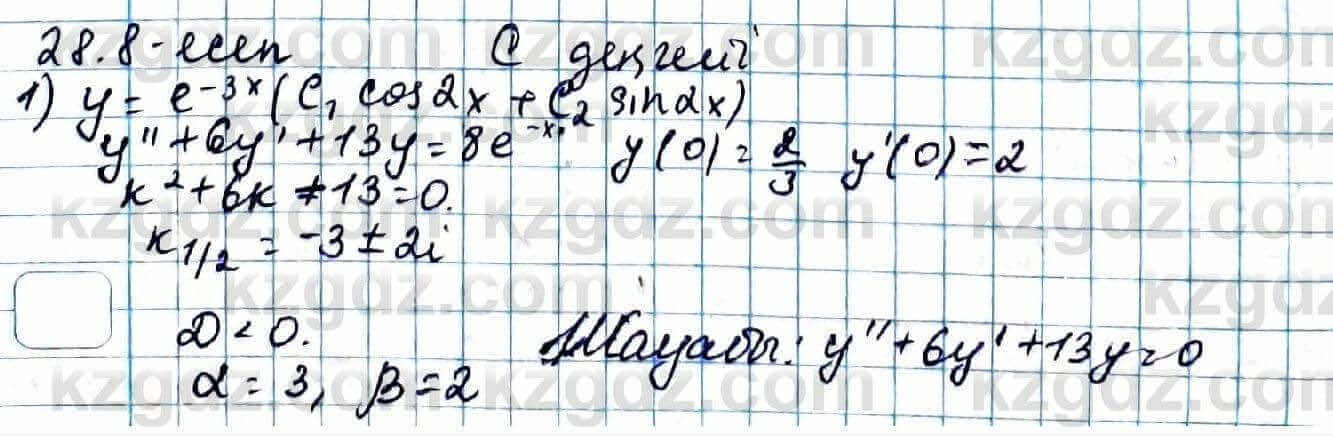 28.8-есеп С деңгейі
1) y = e^{-3x}(C₁ cos2x + C₂ sin2x)
y'' + 6y' + 13y = 8e^{-x}. y(0) = 2/3 y'(0) = 2
k² + 6k + 13 = 0.
k_{1/2} = -3 ± 2i
D < 0. Жауабы: y'' + 6y' + 13y = 0
α = 3, β = 2
kzgdz.com